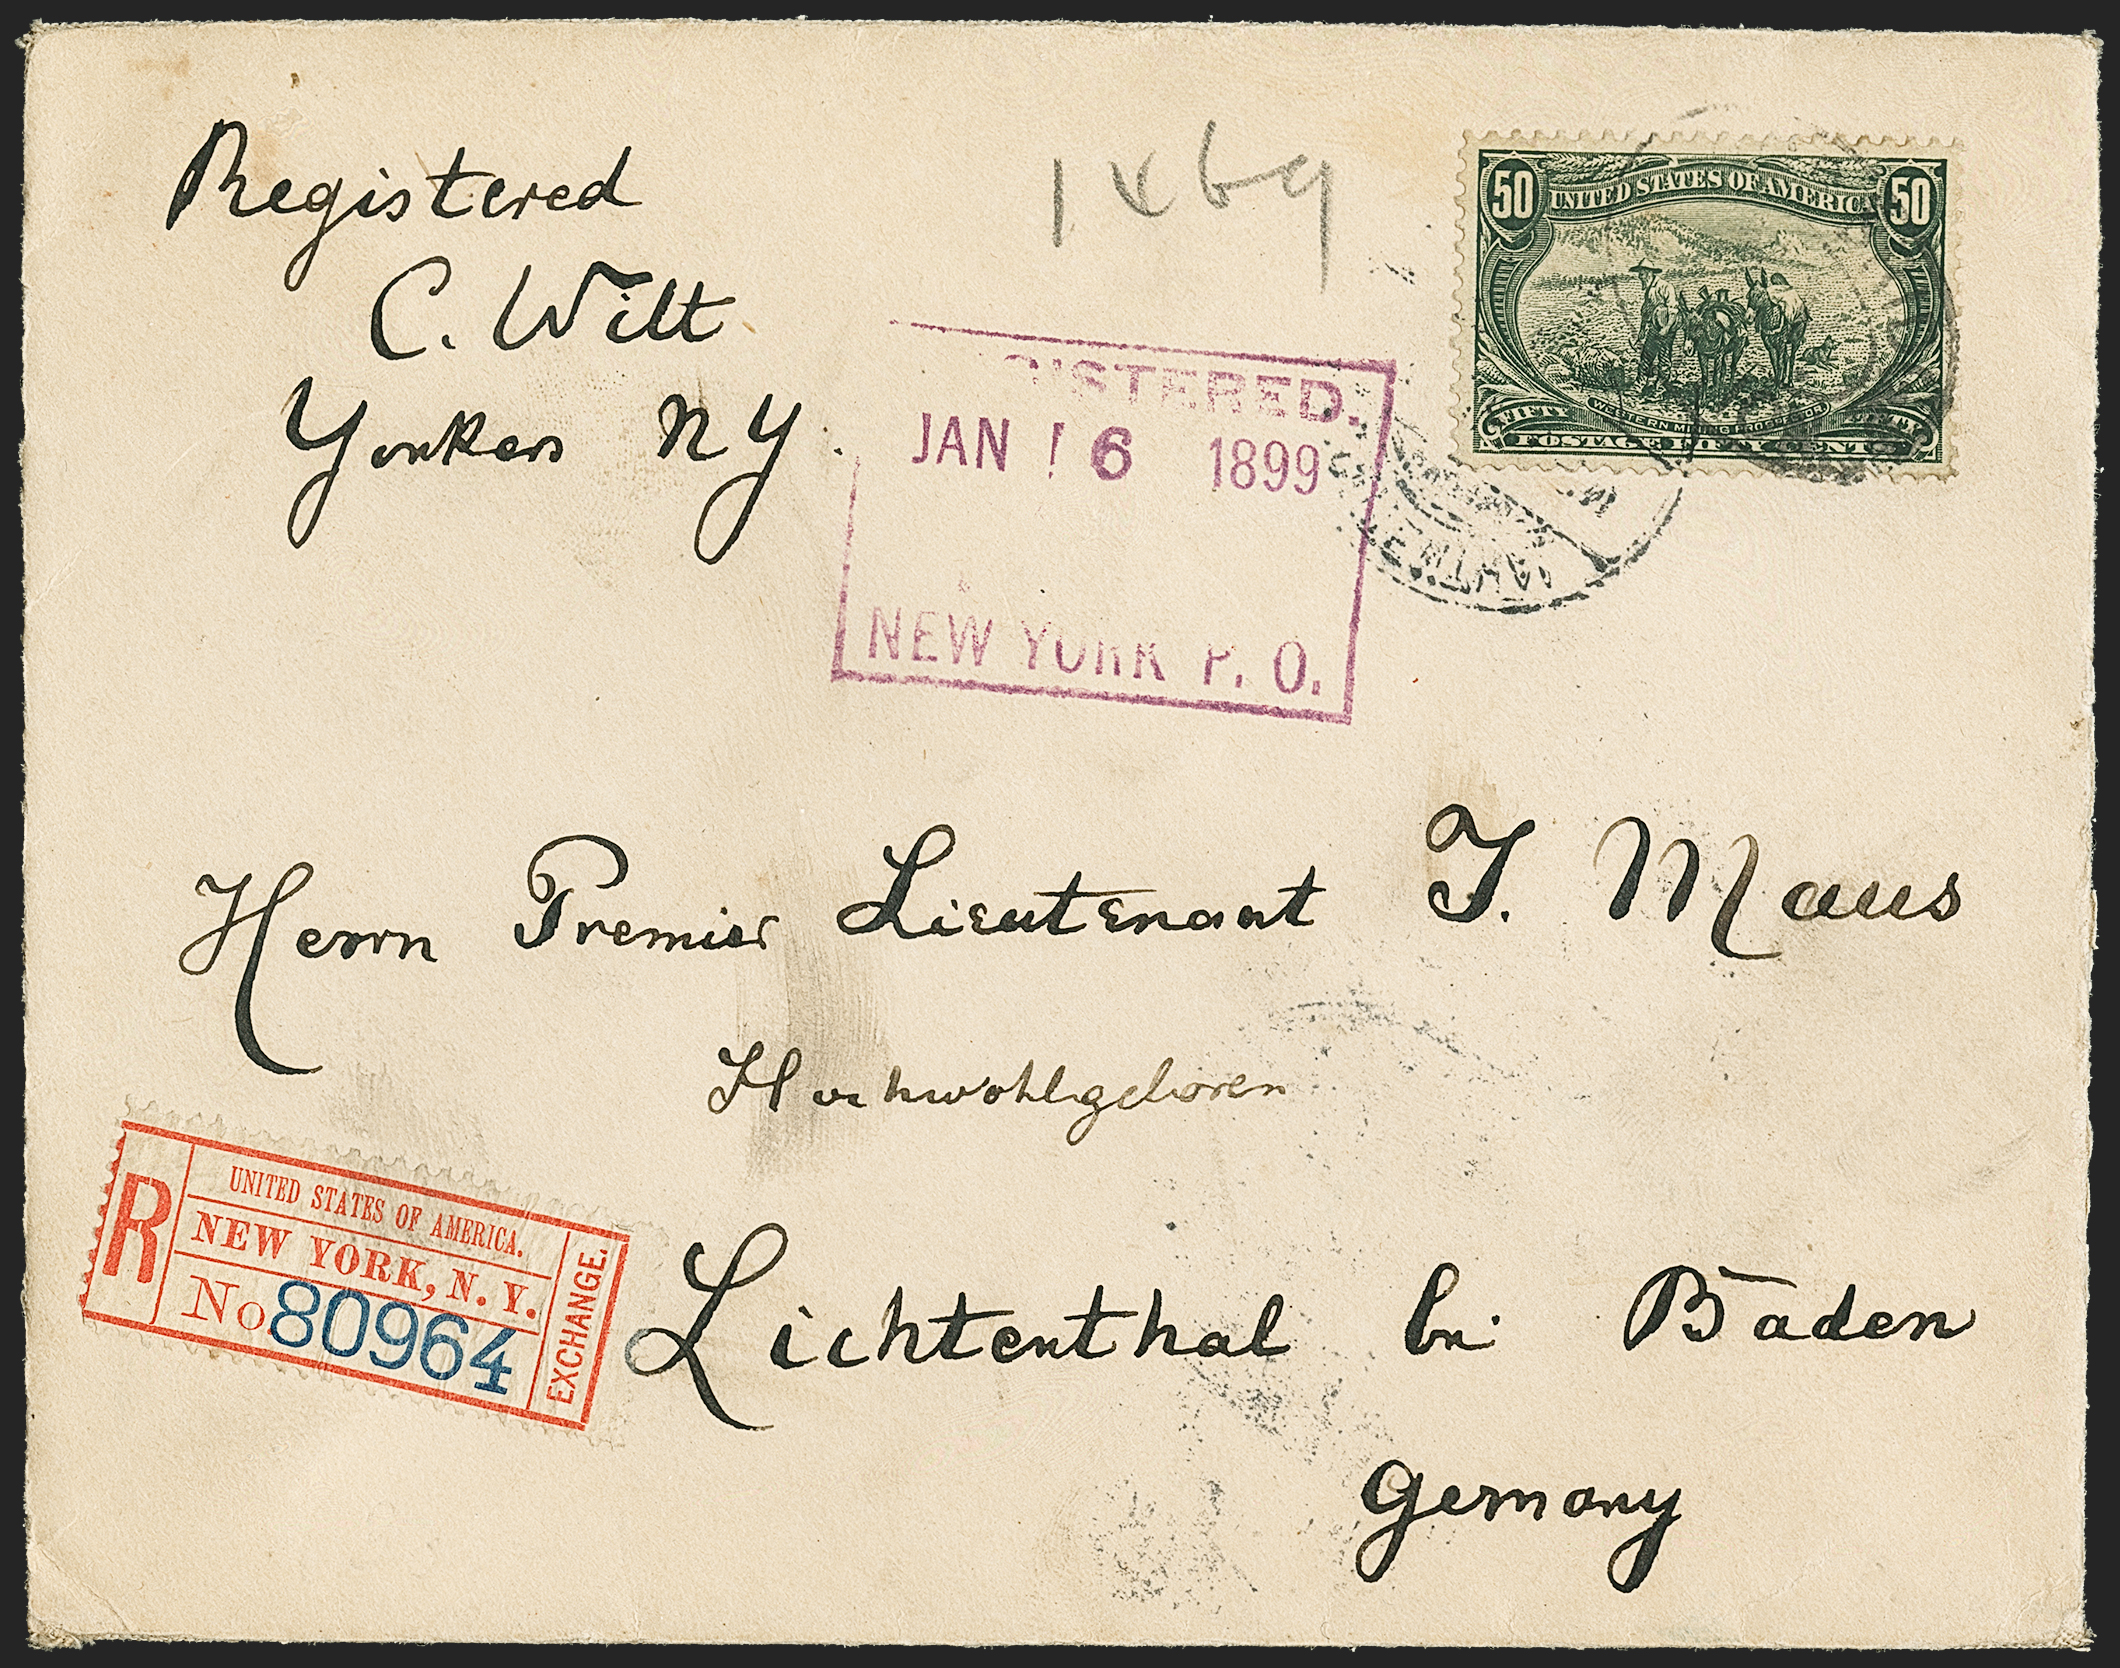 Registered
C. Wilt
Yonkers NY.
50 UNITED STATES OF AMERICA 50
WESTERN MINING PROSPECTOR
FIFTY FIFTY
POSTAGE FIFTY CENTS
GISTERED.
JAN 16 1899
NEW YORK P. O.
Herrn Premier Lieutenant J. Maus
Hochwohlgeboren
R
UNITED STATES OF AMERICA.
NEW YORK, N. Y.
No. 80964
EXCHANGE.
Lichtenthal bei Baden
Germany